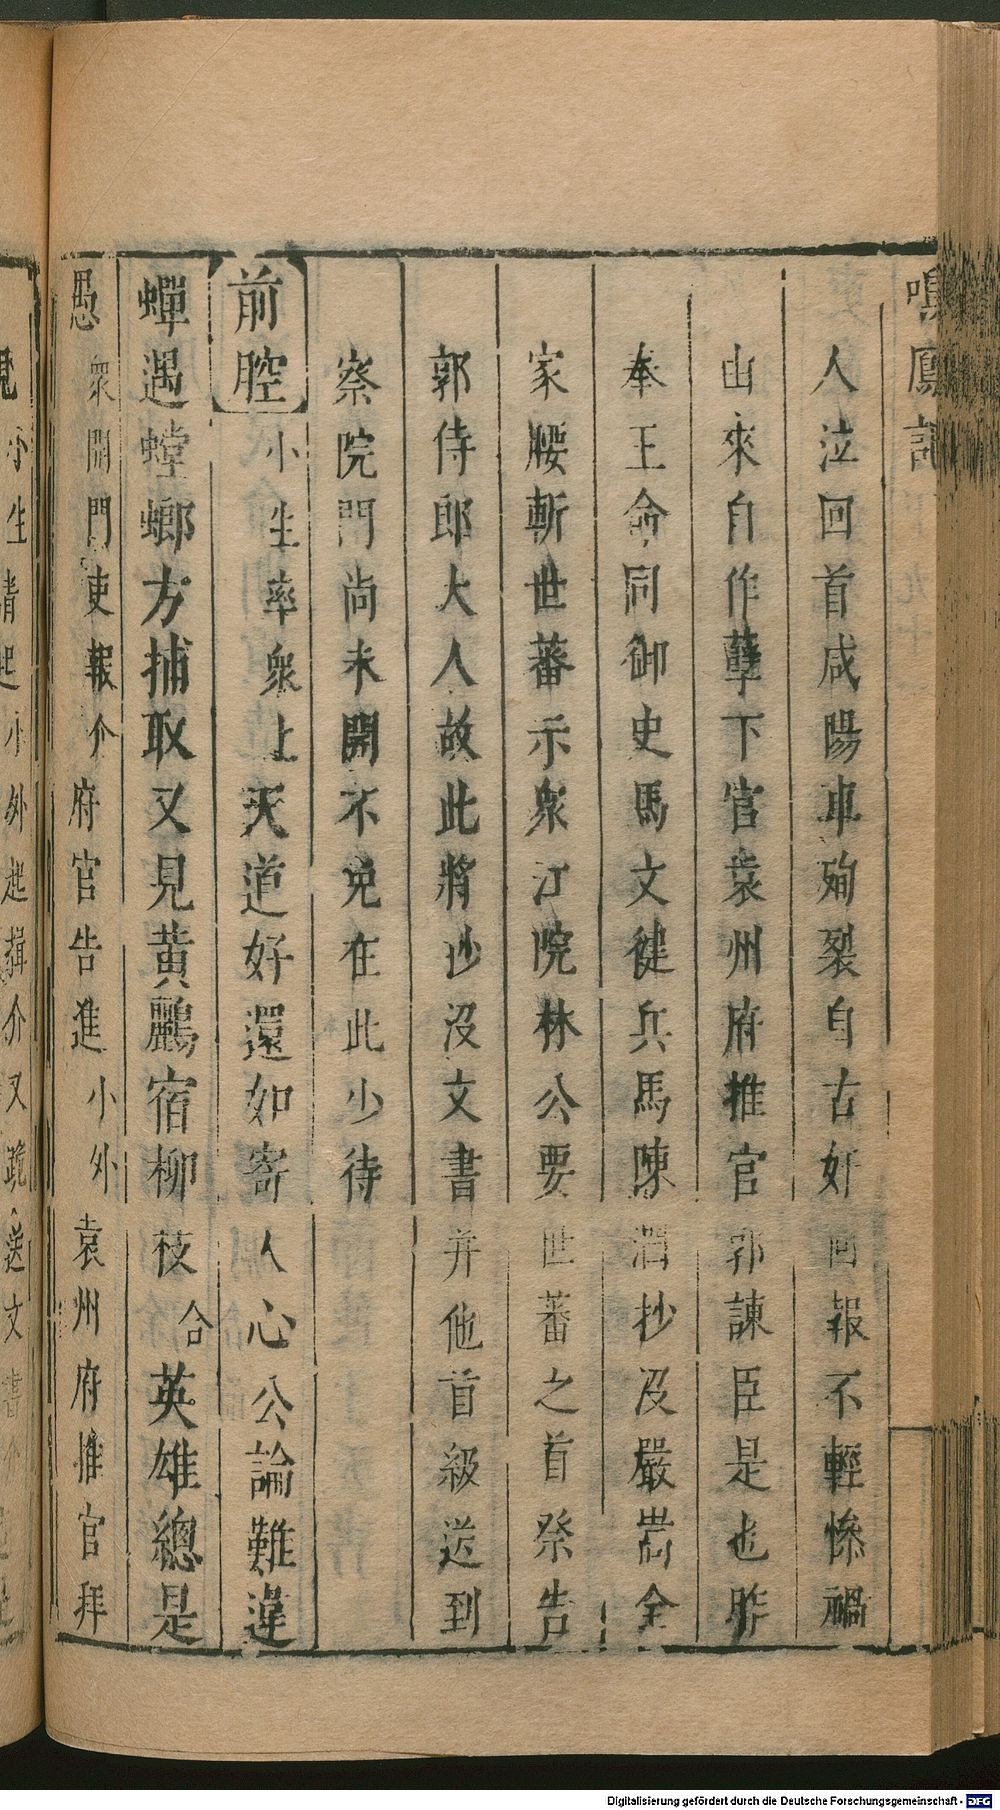 鳴鳳記
人泣回首咸陽車殉裂自古奸回報不輕慘禍
由來自作孽下官袁州府推官郭諫臣是也昨
奉王命同御史馬文健兵馬陳潤抄没嚴嵩全
家腰斬世蕃示衆江院林公要世蕃之首祭告
郭侍郎大人故此將抄沒文書并他首級送到
察院門尚未開不免在此少待
前腔小生率衆上天道好還如寄人心公論難違
蟬遇螳螂方捕取又見黃鸝宿柳枝合英雄總是
愚衆開門吏報介府官告進小外袁州府推官拜
小生請起小外起揖介又跪送文書介
Digitalisierung gefördert durch die Deutsche Forschungsgemeinschaft - DFG